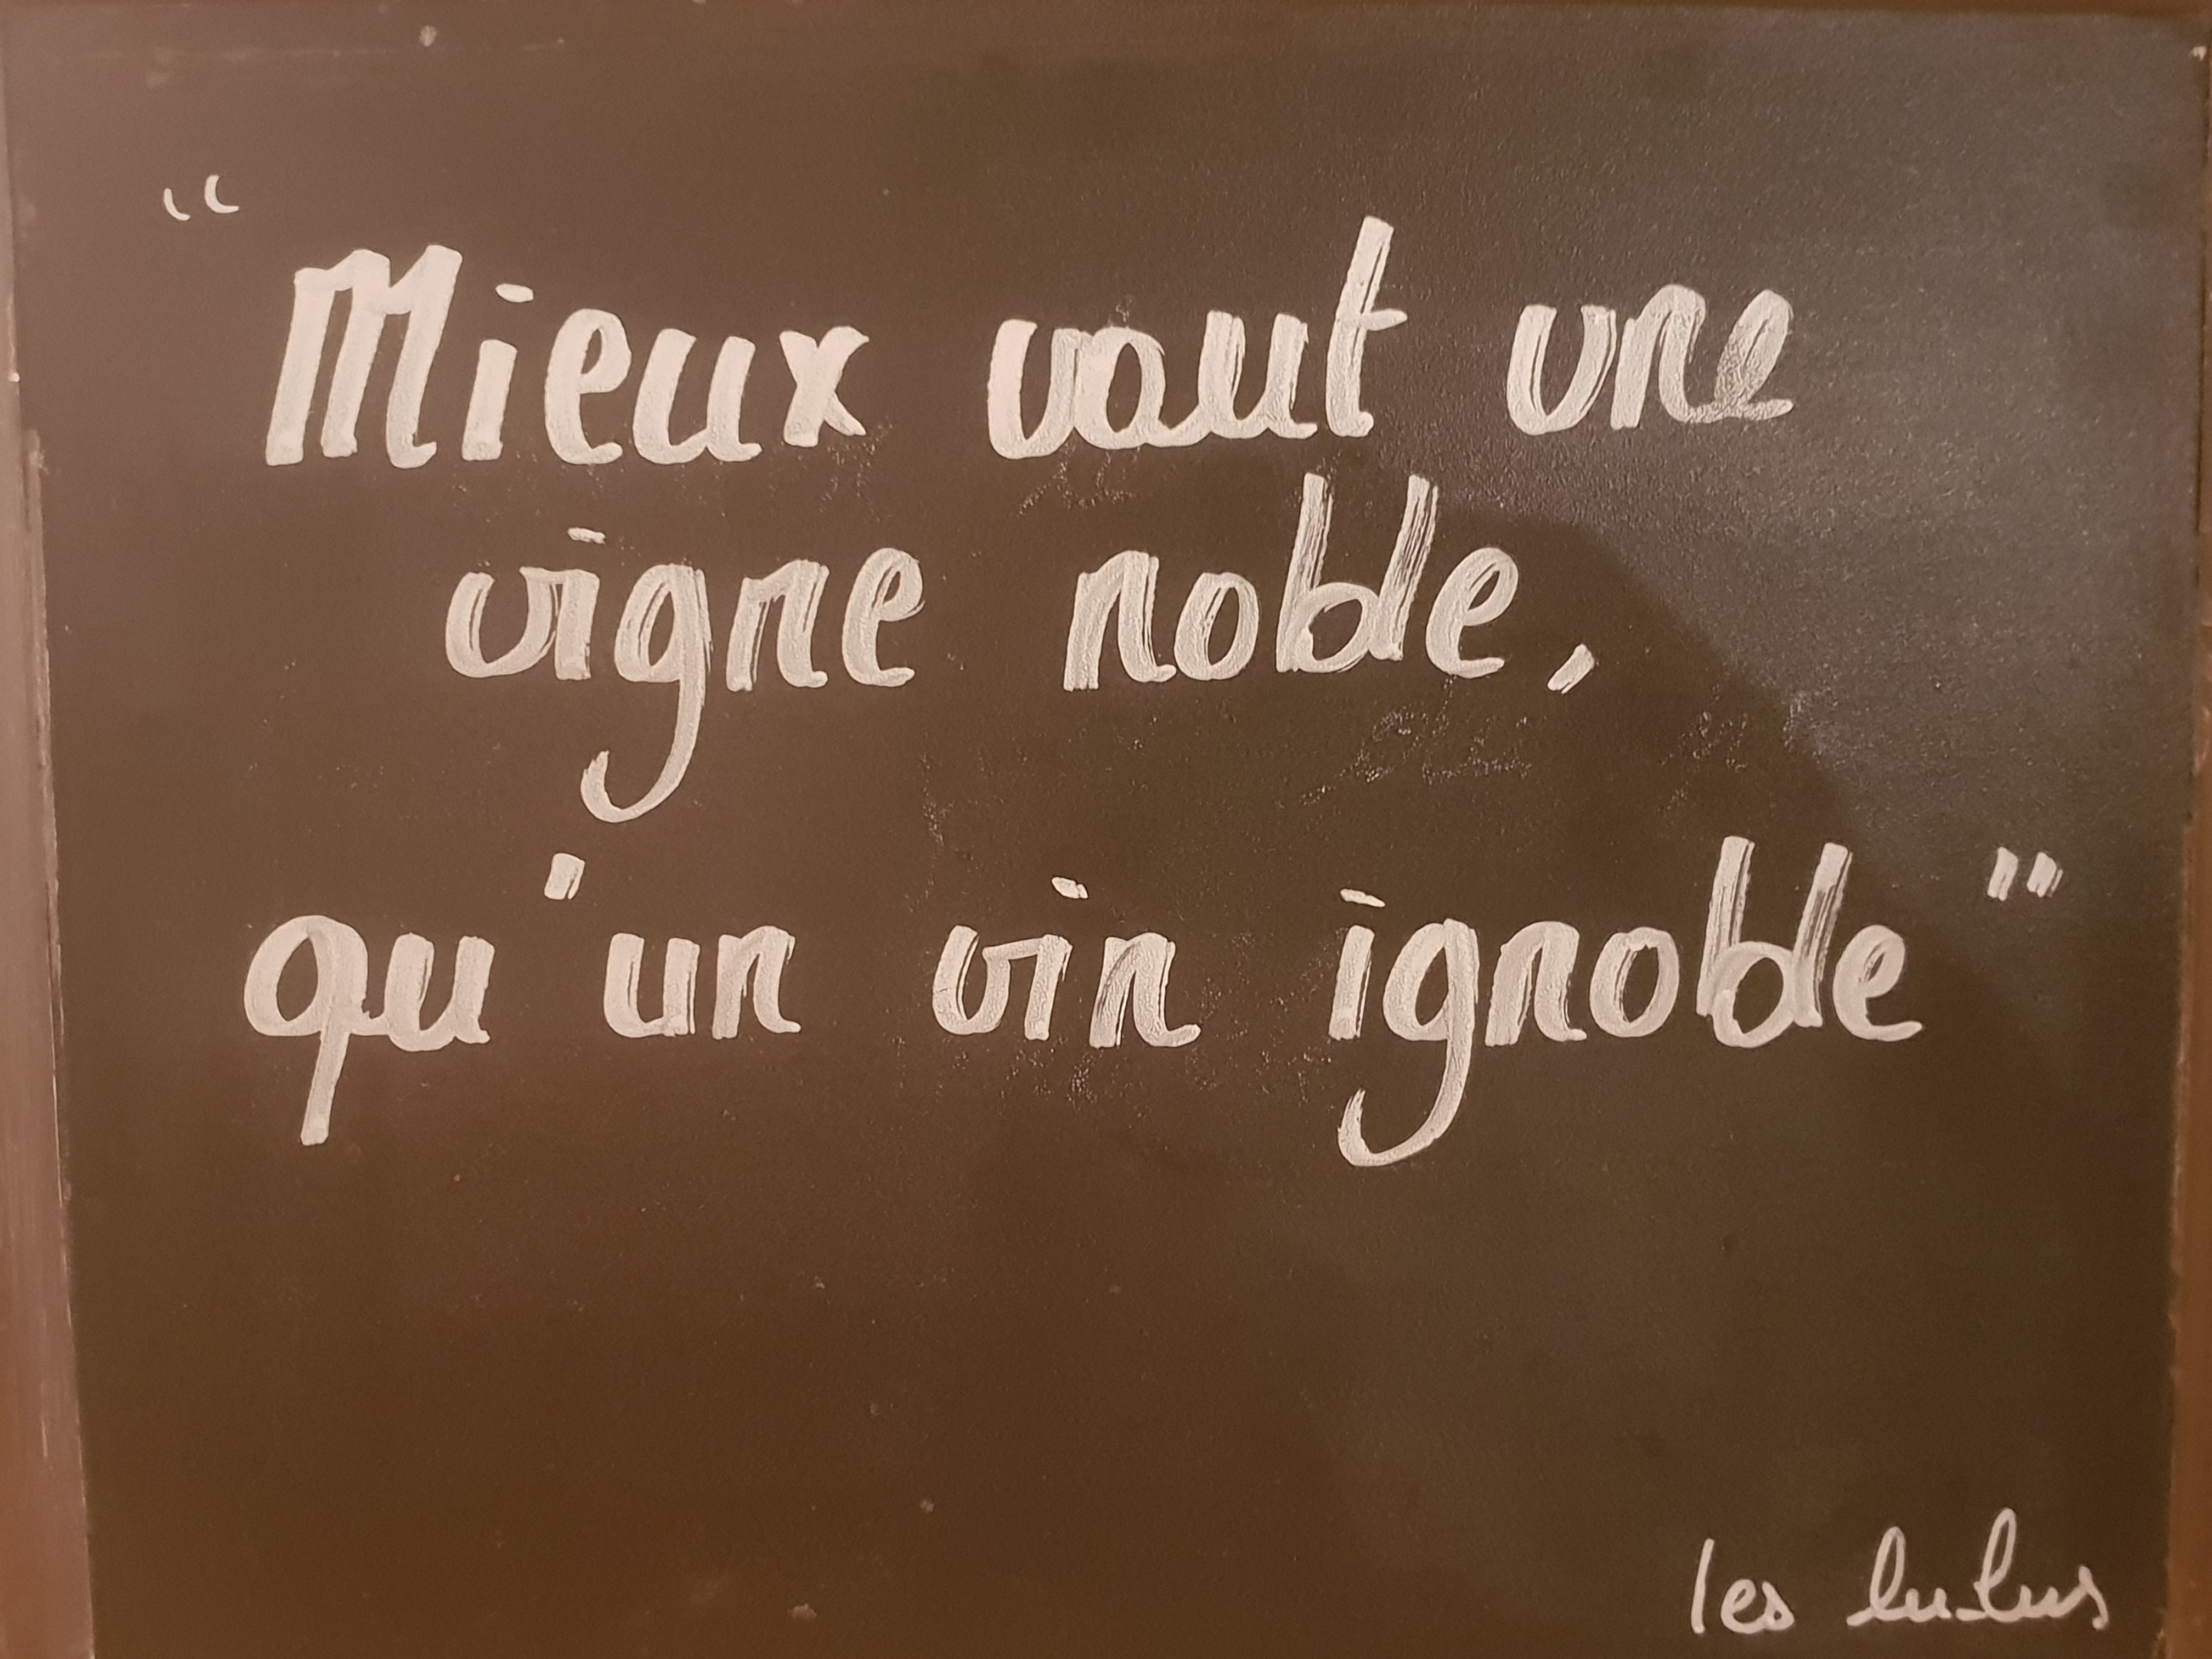 “Mieux vaut une
vigne noble,
qu'un vin ignoble"
les lulus